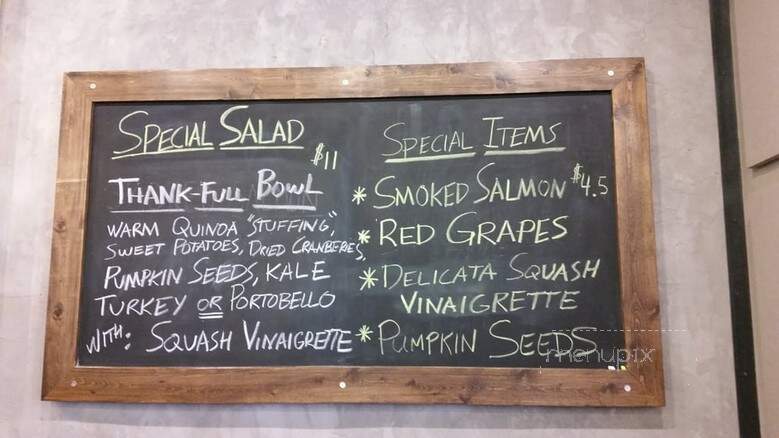 SPECIAL SALAD
$11
THANK-FULL BOWL
WARM QUINOA "STUFFING",
SWEET POTATOES, DRIED CRANBERRIES,
PUMPKIN SEEDS, KALE
TURKEY OR PORTOBELLO
WITH: SQUASH VINAIGRETTE
SPECIAL ITEMS
* SMOKED SALMON $4.5
* RED GRAPES
* DELICATA SQUASH
VINAIGRETTE
* PUMPKIN SEEDS
menupix